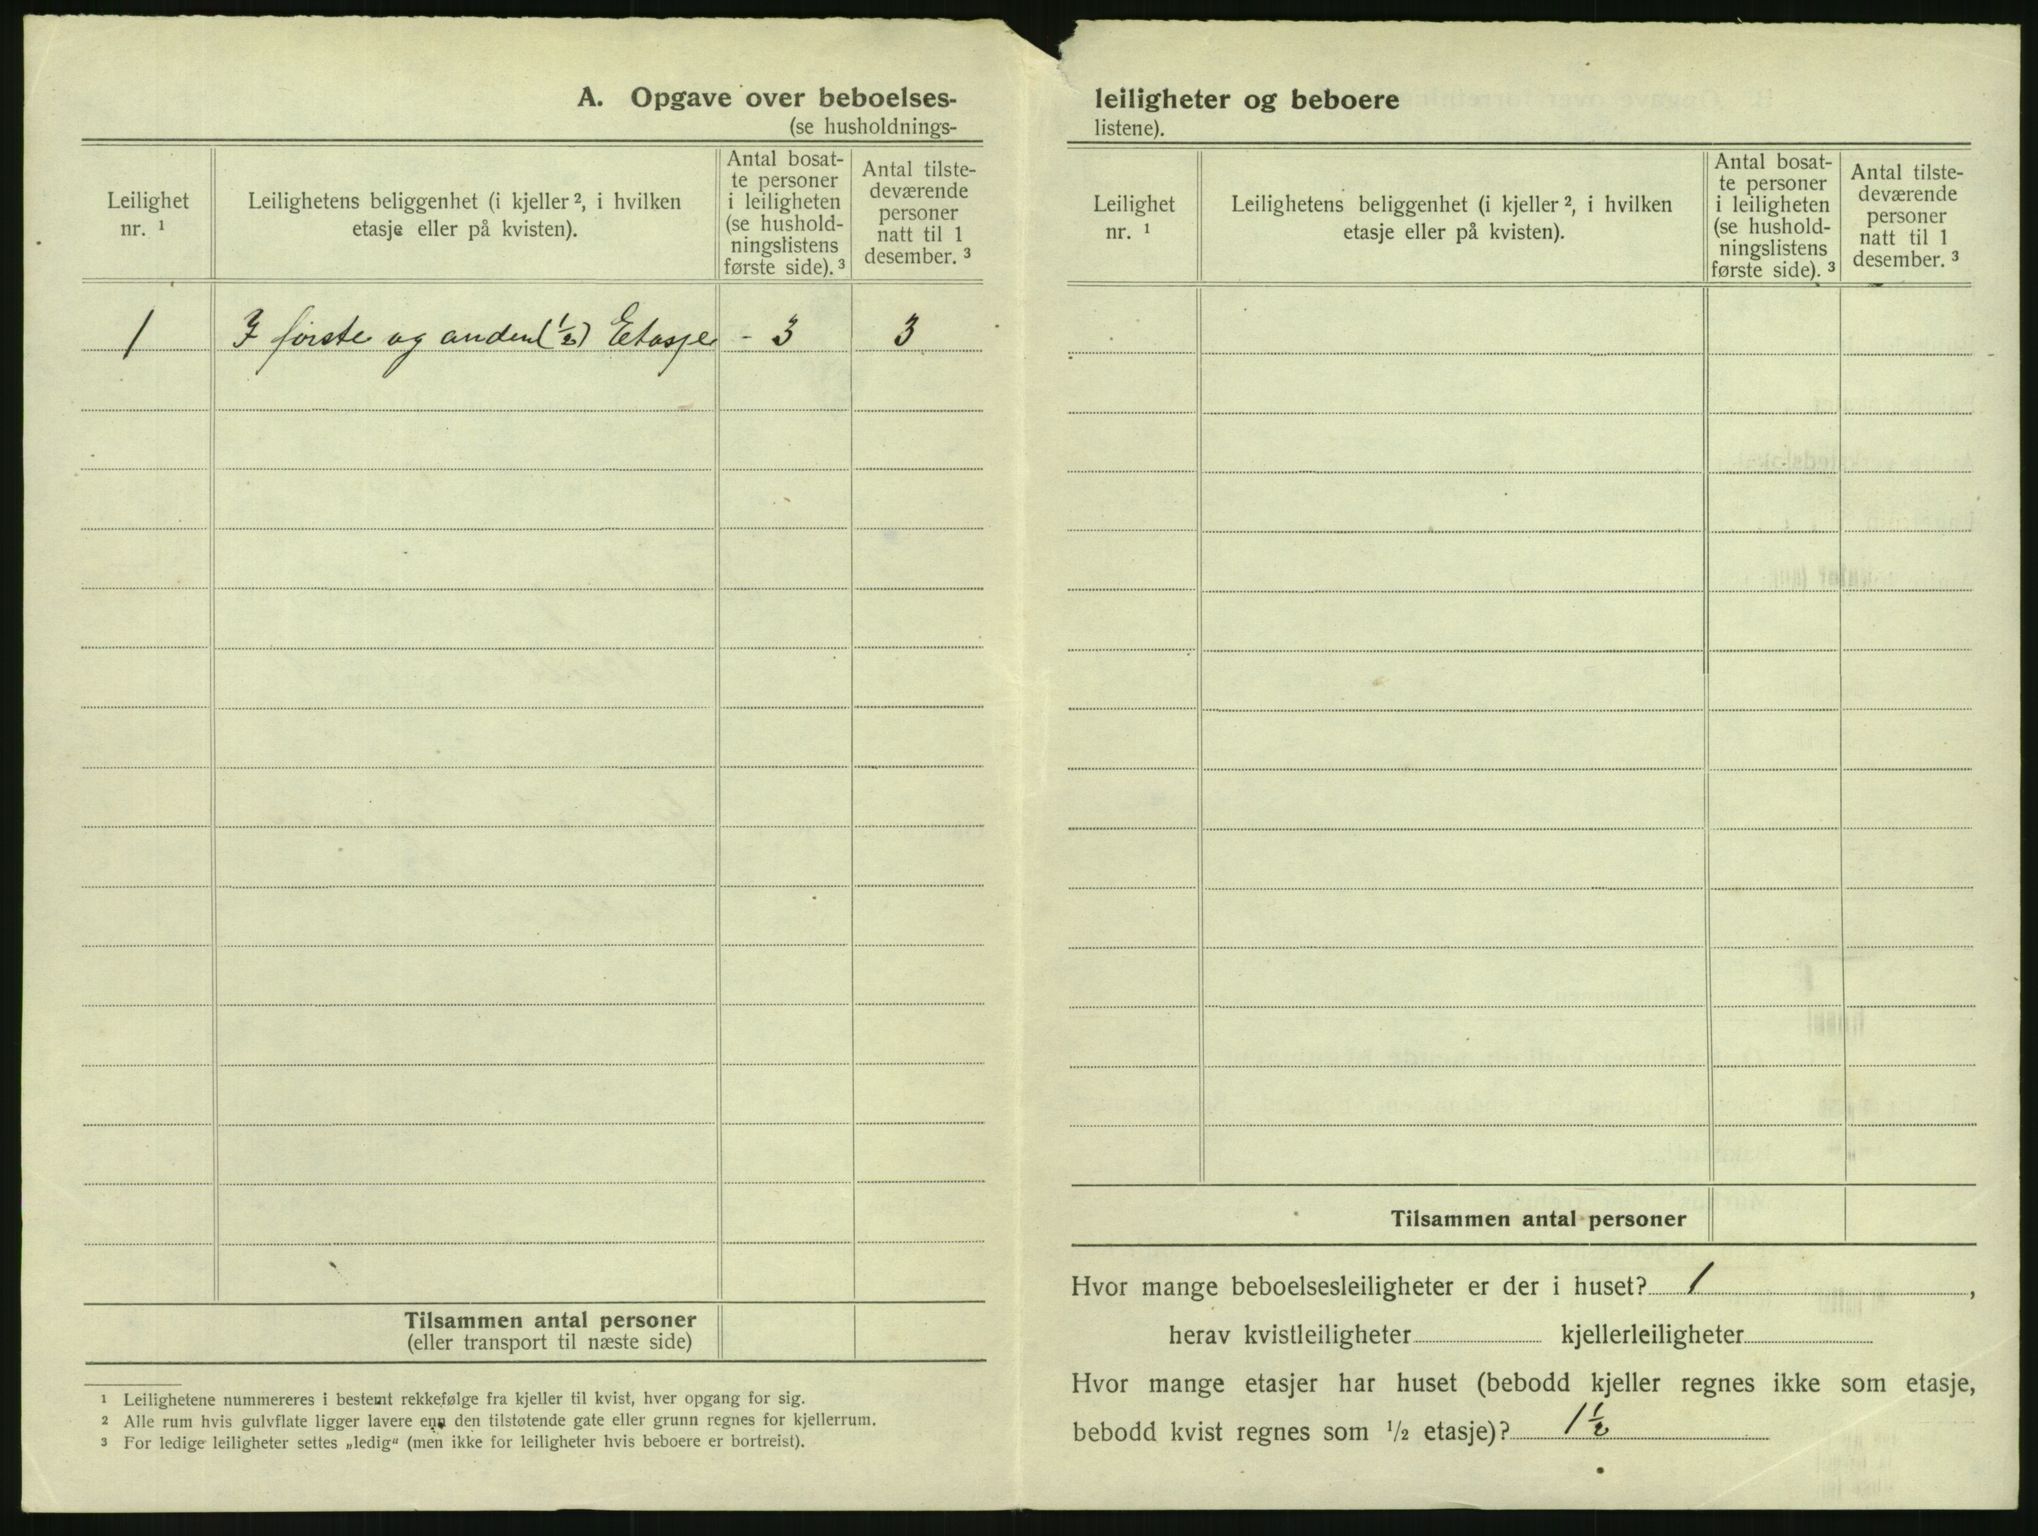 A. Opgave over beboelses-
(se husholdnings-
Leilighet
nr. ¹
Leilighetens beliggenhet (i kjeller ², i hvilken
etasje eller på kvisten).
Antal bosat-
te personer
i leiligheten
(se hushold-
ningslistens
første side). ³
Antal tilste-
deværende
personer
natt til 1
desember. ³
1 I første og anden (½) Etasje - 3 3
Tilsammen antal personer
(eller transport til næste side)
¹ Leilighetene nummereres i bestemt rekkefølge fra kjeller til kvist, hver opgang for sig.
² Alle rum hvis gulvflate ligger lavere enn den tilstøtende gate eller grunn regnes for kjellerrum.
³ For ledige leiligheter settes „ledig“ (men ikke for leiligheter hvis beboere er bortreist).
leiligheter og beboere
listene).
Leilighet
nr. ¹
Leilighetens beliggenhet (i kjeller ², i hvilken
etasje eller på kvisten).
Antal bosat-
te personer
i leiligheten
(se hushold-
ningslistens
første side). ³
Antal tilste-
deværende
personer
natt til 1
desember. ³
Tilsammen antal personer
Hvor mange beboelsesleiligheter er der i huset? 1,
herav kvistleiligheter kjellerleiligheter
Hvor mange etasjer har huset (bebodd kjeller regnes ikke som etasje,
bebodd kvist regnes som ½ etasje)? 1 ½